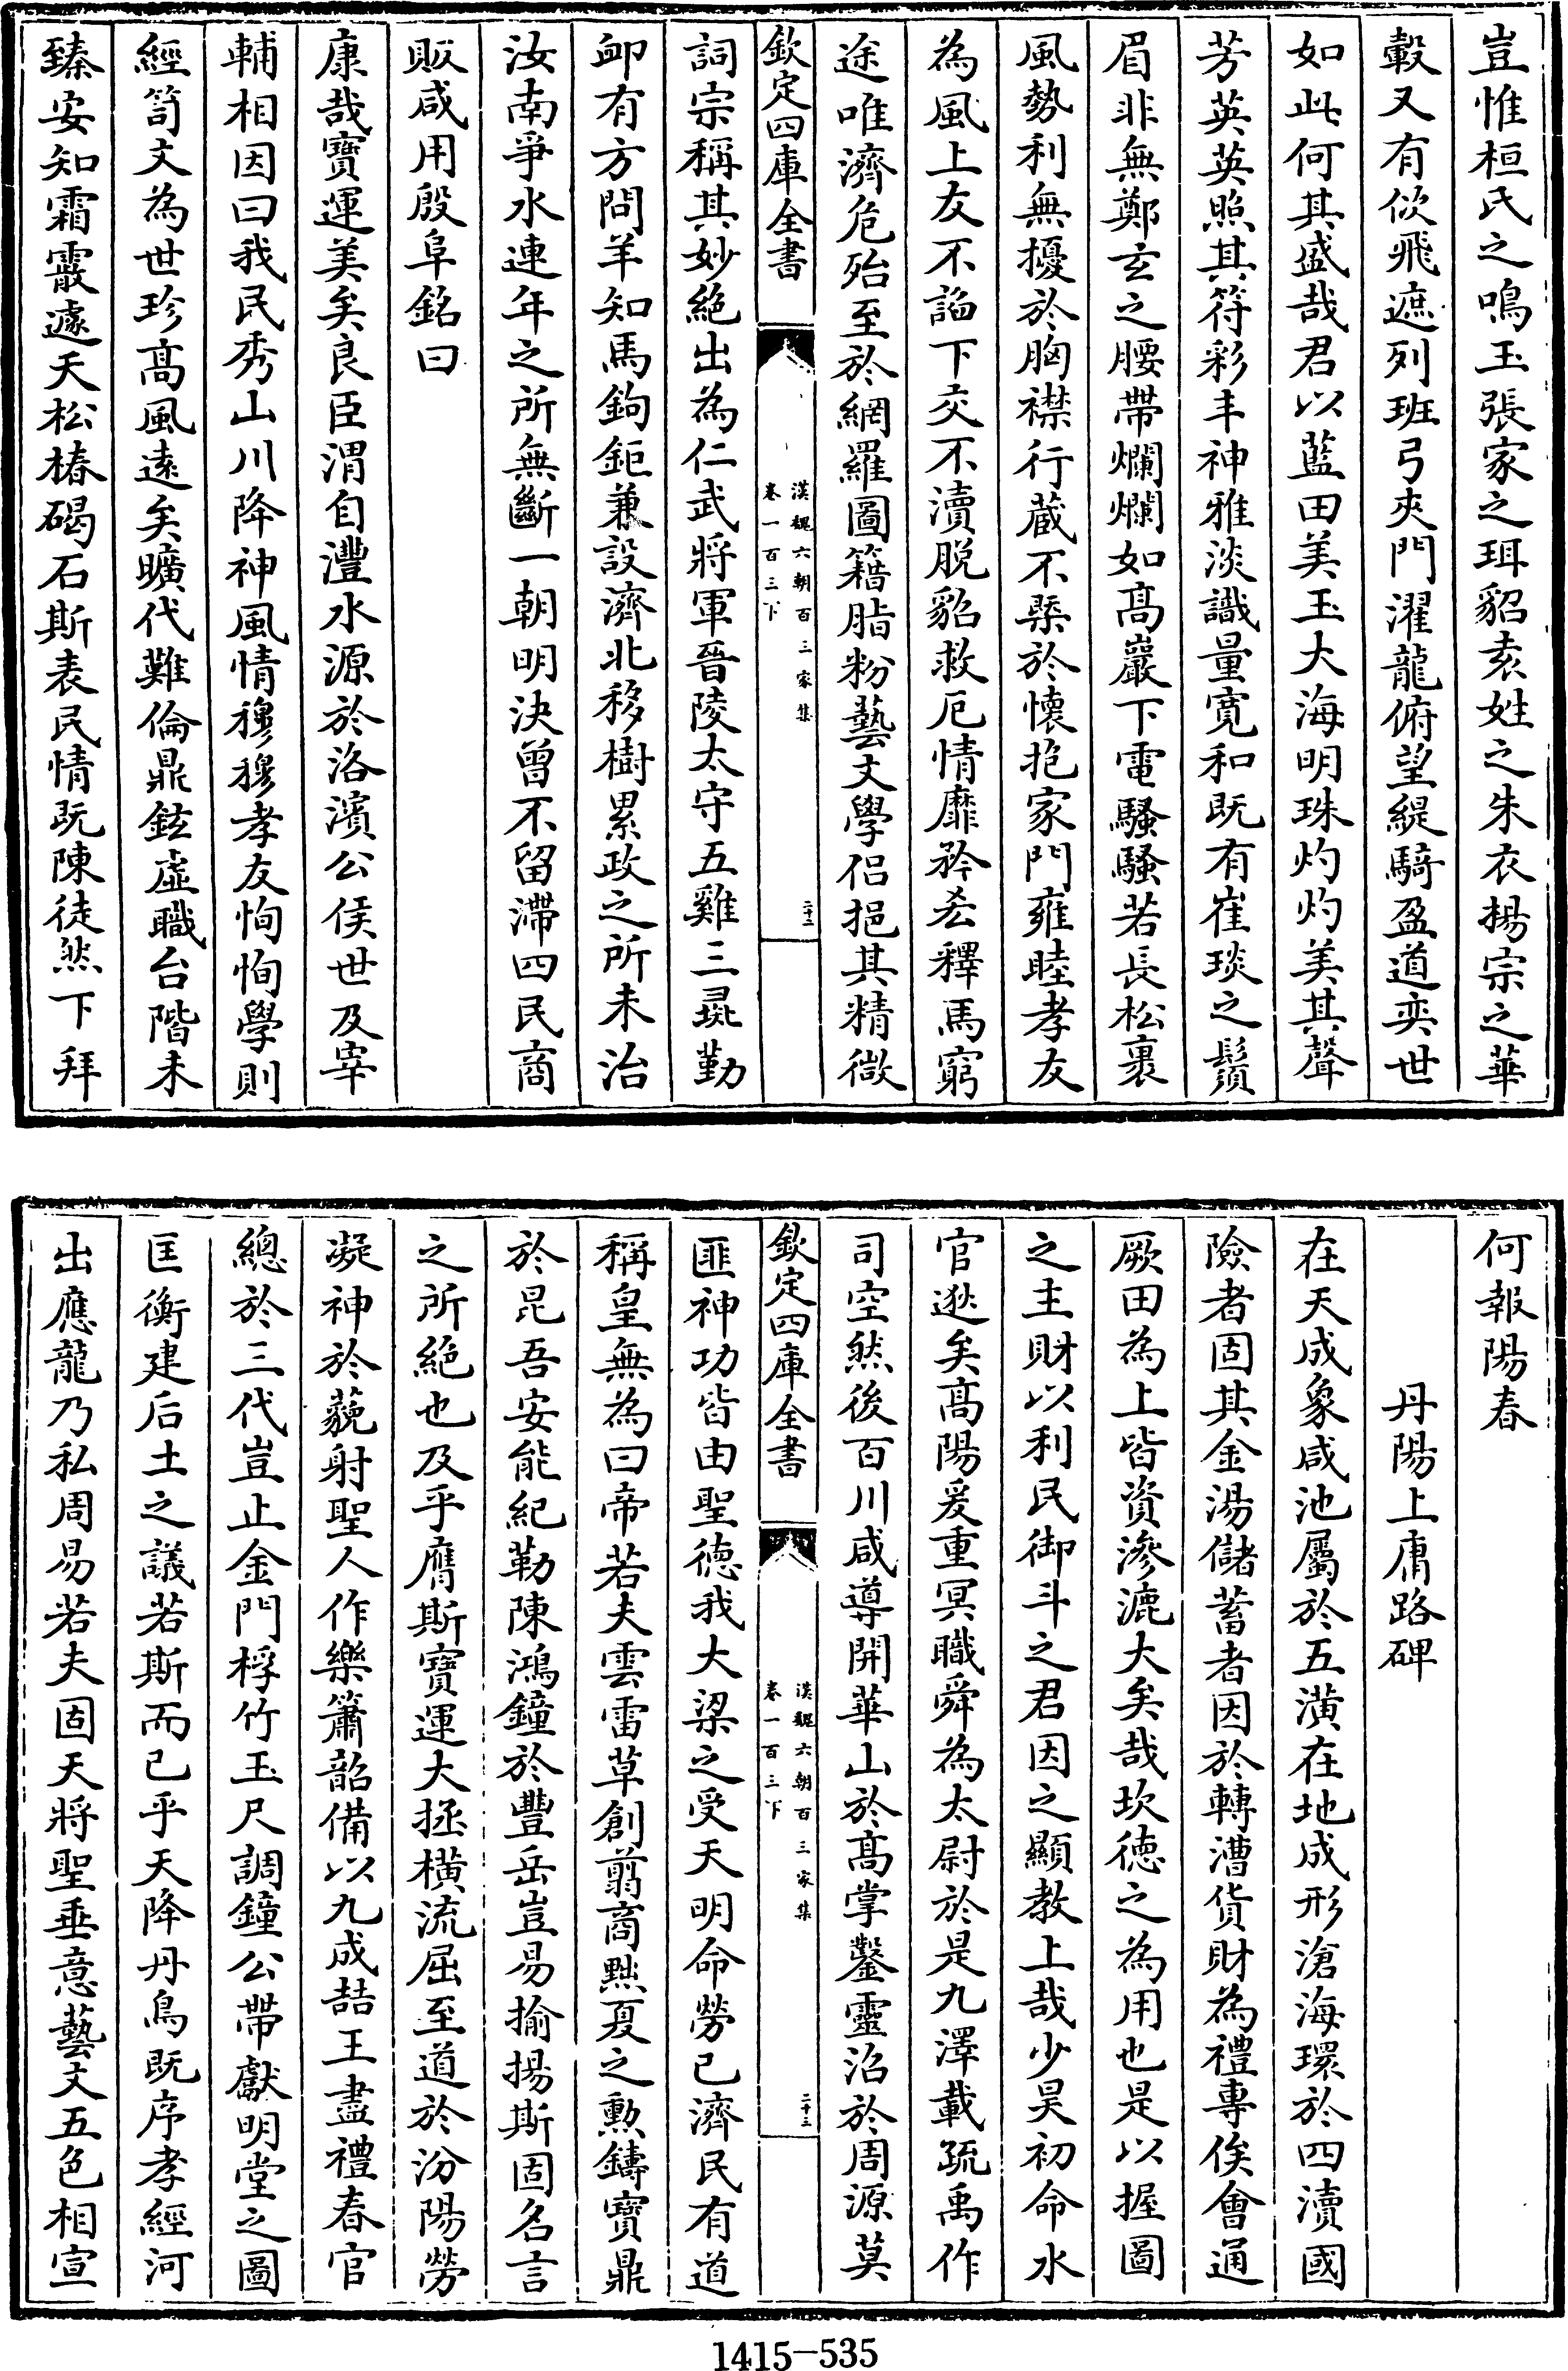 豈惟桓氏之鳴玉張家之珥貂袁姓之朱衣揚宗之華
轂又有佽飛遮列班弓夾門濯龍俯望緹騎盈道奕世
如此何其盛哉君以藍田美玉大海明珠灼灼美其聲
芳英英照其符彩丰神雅淡識量寛和既有崔琰之鬚
眉非無鄭玄之腰帶爛爛如髙巖下電騷騷若長松裏
風勢利無擾於胸襟行藏不槩於懷抱家門雍睦孝友
為風上友不諂下交不瀆脱貂救厄情靡矜忩釋馬窮
途唯濟危殆至於網羅圖籍脂粉藝文學侣挹其精微
欽定四庫全書
漢魏六朝百三家集
卷一百三下
二十二
詞宗稱其妙絶出為仁武將軍晉陵太守五雞三彘勤
卹有方問羊知馬鉤鉅兼設濟北移樹累政之所未治
汝南爭水連年之所無斷一朝明決曾不留滯四民商
販咸用殷阜銘曰
康哉寶運美矣良臣渭自灃水源於洛濱公侯世及宰
輔相因曰我民秀山川降神風情穆穆孝友恂恂學則
經笥文為世珍髙風逺矣曠代難倫鼎鉉虚職台階未
臻安知霜霰遽夭松椿碣石斯表民情既陳徒然下拜
何報陽春
丹陽上庸路碑
在天成象咸池屬於五潢在地成形滄海環於四瀆國
險者固其金湯儲蓄者因於轉漕貨財為禮專俟會通
厥田為上皆資滲漉大矣哉坎徳之為用也是以握圖
之主財以利民御斗之君因之顯教上哉少昊初命水
官逖矣髙陽爰重冥職舜為太尉於是九澤載疏禹作
司空然後百川咸導開華山於髙掌鑿靈沼於周源莫
欽定四庫全書
漢魏六朝百三家集
卷一百三下
二十三
匪神功皆由聖徳我大梁之受天明命勞已濟民有道
稱皇無為曰帝若夫雲雷草創翦商黜夏之勲鑄寶鼎
於昆吾安能紀勒陳鴻鐘於豐岳豈易揄揚斯固名言
之所絶也及乎膺斯寶運大拯横流屈至道於汾陽勞
凝神於藐射聖人作樂簫韶備以九成喆王盡禮春官
總於三代豈止金門桴竹玉尺調鐘公帶獻明堂之圖
匡衡建后土之議若斯而已乎天降丹鳥既序孝經河
出應龍乃私周易若夫固天將聖垂意藝文五色相宣
1415-535